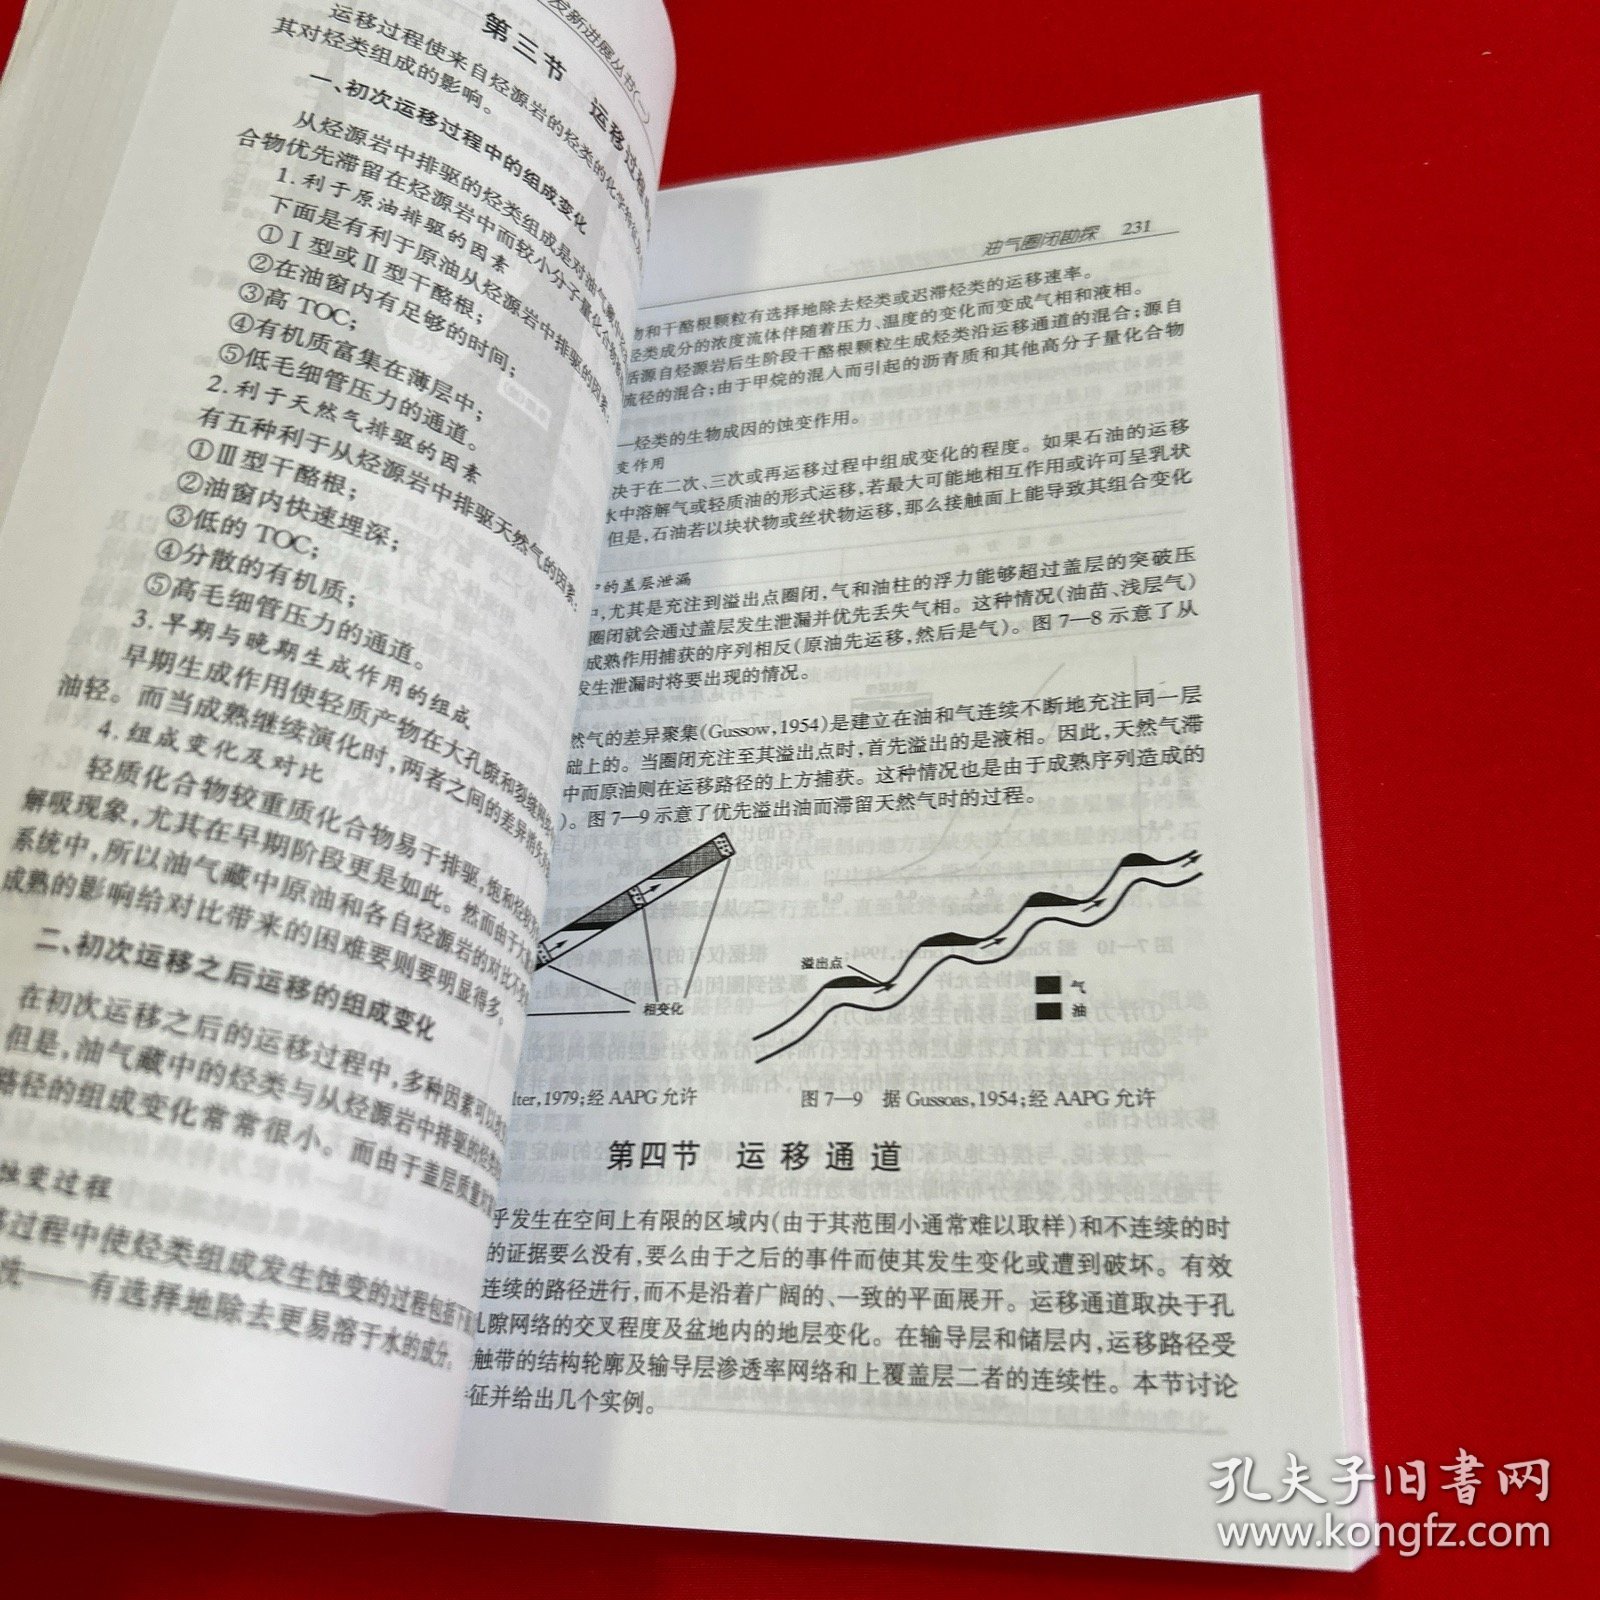 发新进展丛书(一)
第三节 运移过程
运移过程使来自烃源岩的烃类的化学
其对烃类组成的影响。
一、初次运移过程中的组成变化
从烃源岩中排驱的烃类组成是对油气藏中
合物优先滞留在烃源岩中而较小分子量化合物
1.利于原油排驱的因素
下面是有利于原油从烃源岩中排驱的因素:
①Ⅰ型或Ⅱ型干酪根;
②在油窗内有足够的时间;
③高TOC;
④有机质富集在薄层中;
⑤低毛细管压力的通道。
2.利于天然气排驱的因素
有五种利于从烃源岩中排驱天然气的因素:
①Ⅲ型干酪根;
②油窗内快速埋深;
③低的TOC;
④分散的有机质;
⑤高毛细管压力的通道。
3.早期与晚期生成作用的组成
早期生成作用使轻质产物在大孔隙和裂缝
油轻。而当成熟继续演化时,两者之间的差异消失
4.组成变化及对比
轻质化合物较重质化合物易于排驱,饱和烃较
解吸现象,尤其在早期阶段更是如此。然而由于
系统中,所以油气藏中原油和各自烃源岩的对比不
成熟的影响给对比带来的困难要则要明显得多。
二、初次运移之后运移的组成变化
在初次运移之后的运移过程中,多种因素可以
但是,油气藏中的烃类与从烃源岩中排驱的烃类
路径的组成变化常常很小。而由于盖层质量
蚀变过程
过程中使烃类组成发生蚀变的过程包括下
洗——有选择地除去更易溶于水的成分。
油气圈闭勘探 231
物和干酪根颗粒有选择地除去烃类或迟滞烃类的运移速率。
烃类成分的浓度流体伴随着压力、温度的变化而变成气相和液相。
括源自烃源岩后生阶段干酪根颗粒生成烃类沿运移通道的混合;源自
流径的混合;由于甲烷的混入而引起的沥青质和其他高分子量化合物
—烃类的生物成因的蚀变作用。
变作用
决于在二次、三次或再运移过程中组成变化的程度。如果石油的运移
水中溶解气或轻质油的形式运移,若最大可能地相互作用或许可呈乳状
但是,石油若以块状物或丝状物运移,那么接触面上能导致其组合变化
中的盖层泄漏
中,尤其是充注到溢出点圈闭,气和油柱的浮力能够超过盖层的突破压
圈闭就会通过盖层发生泄漏并优先丢失气相。这种情况(油苗、浅层气)
成熟作用捕获的序列相反(原油先运移,然后是气)。图7—8示意了从
发生泄漏时将要出现的情况。
然气的差异聚集(Gussow,1954)是建立在油和气连续不断地充注同一层
础上的。当圈闭充注至其溢出点时,首先溢出的是液相。因此,天然气滞
中而原油则在运移路径的上方捕获。这种情况也是由于成熟序列造成的
)。图7—9示意了优先溢出油而滞留天然气时的过程。
相变化
溢出点
气
油
lter,1979;经AAPG允许
图7—9 据Gussoas,1954;经AAPG允许
第四节 运移通道
乎发生在空间上有限的区域内(由于其范围小通常难以取样)和不连续的时
的证据要么没有,要么由于之后的事件而使其发生变化或遭到破坏。有效
连续的路径进行,而不是沿着广阔的、一致的平面展开。运移通道取决于孔
孔隙网络的交叉程度及盆地内的地层变化。在输导层和储层内,运移路径受
触带的结构轮廓及输导层渗透率网络和上覆盖层二者的连续性。本节讨论
征并给出几个实例。
孔夫子旧书网
www.kongfz.com